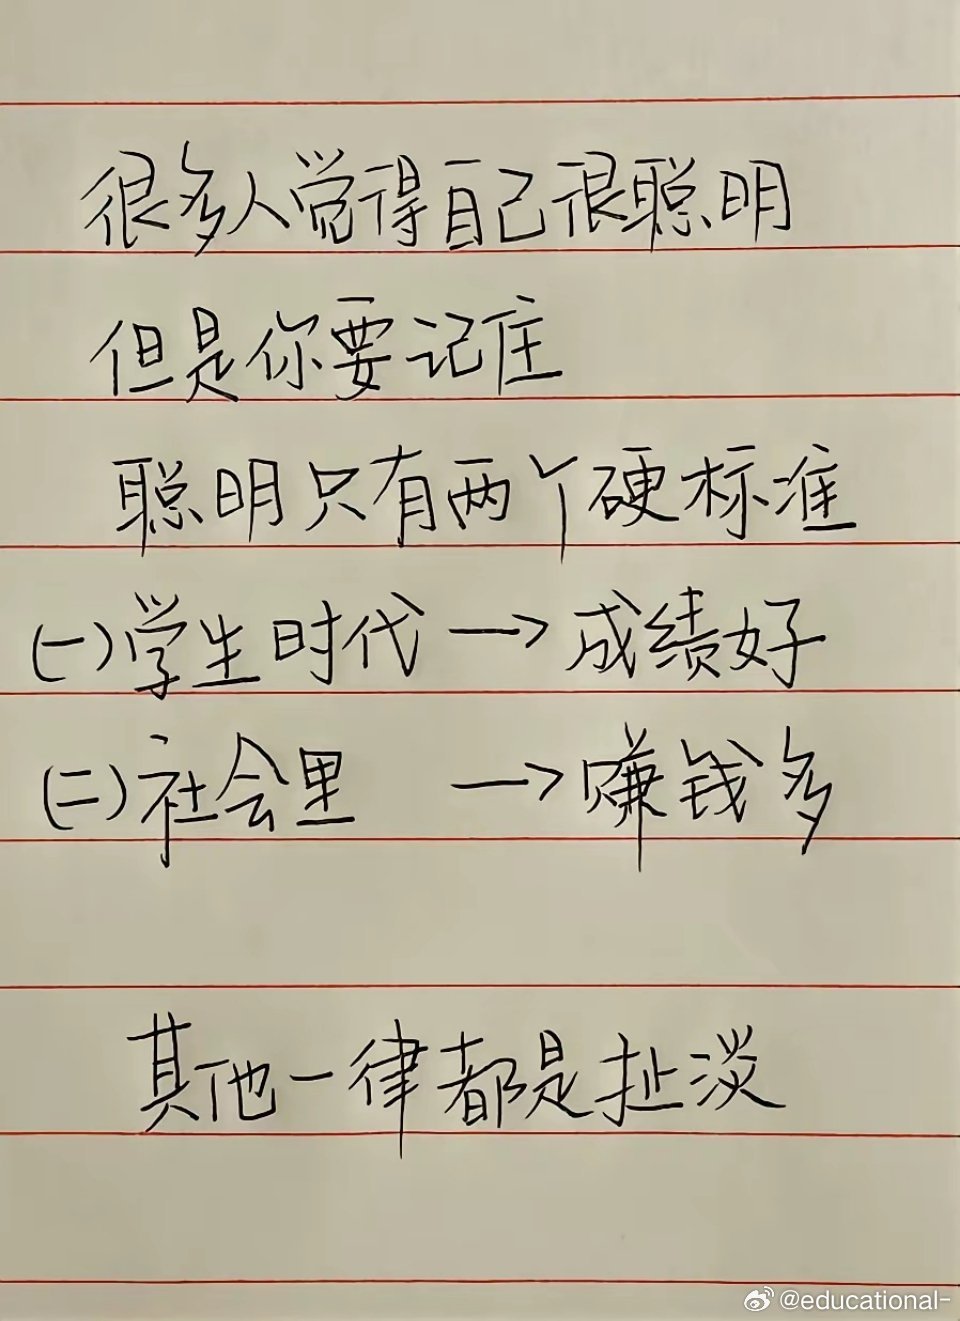 很多人觉得自己很聪明
但是你要记住
聪明只有两个硬标准
(一)学生时代→成绩好
(二)社会里 →赚钱多
其他一律都是扯淡
@educational-